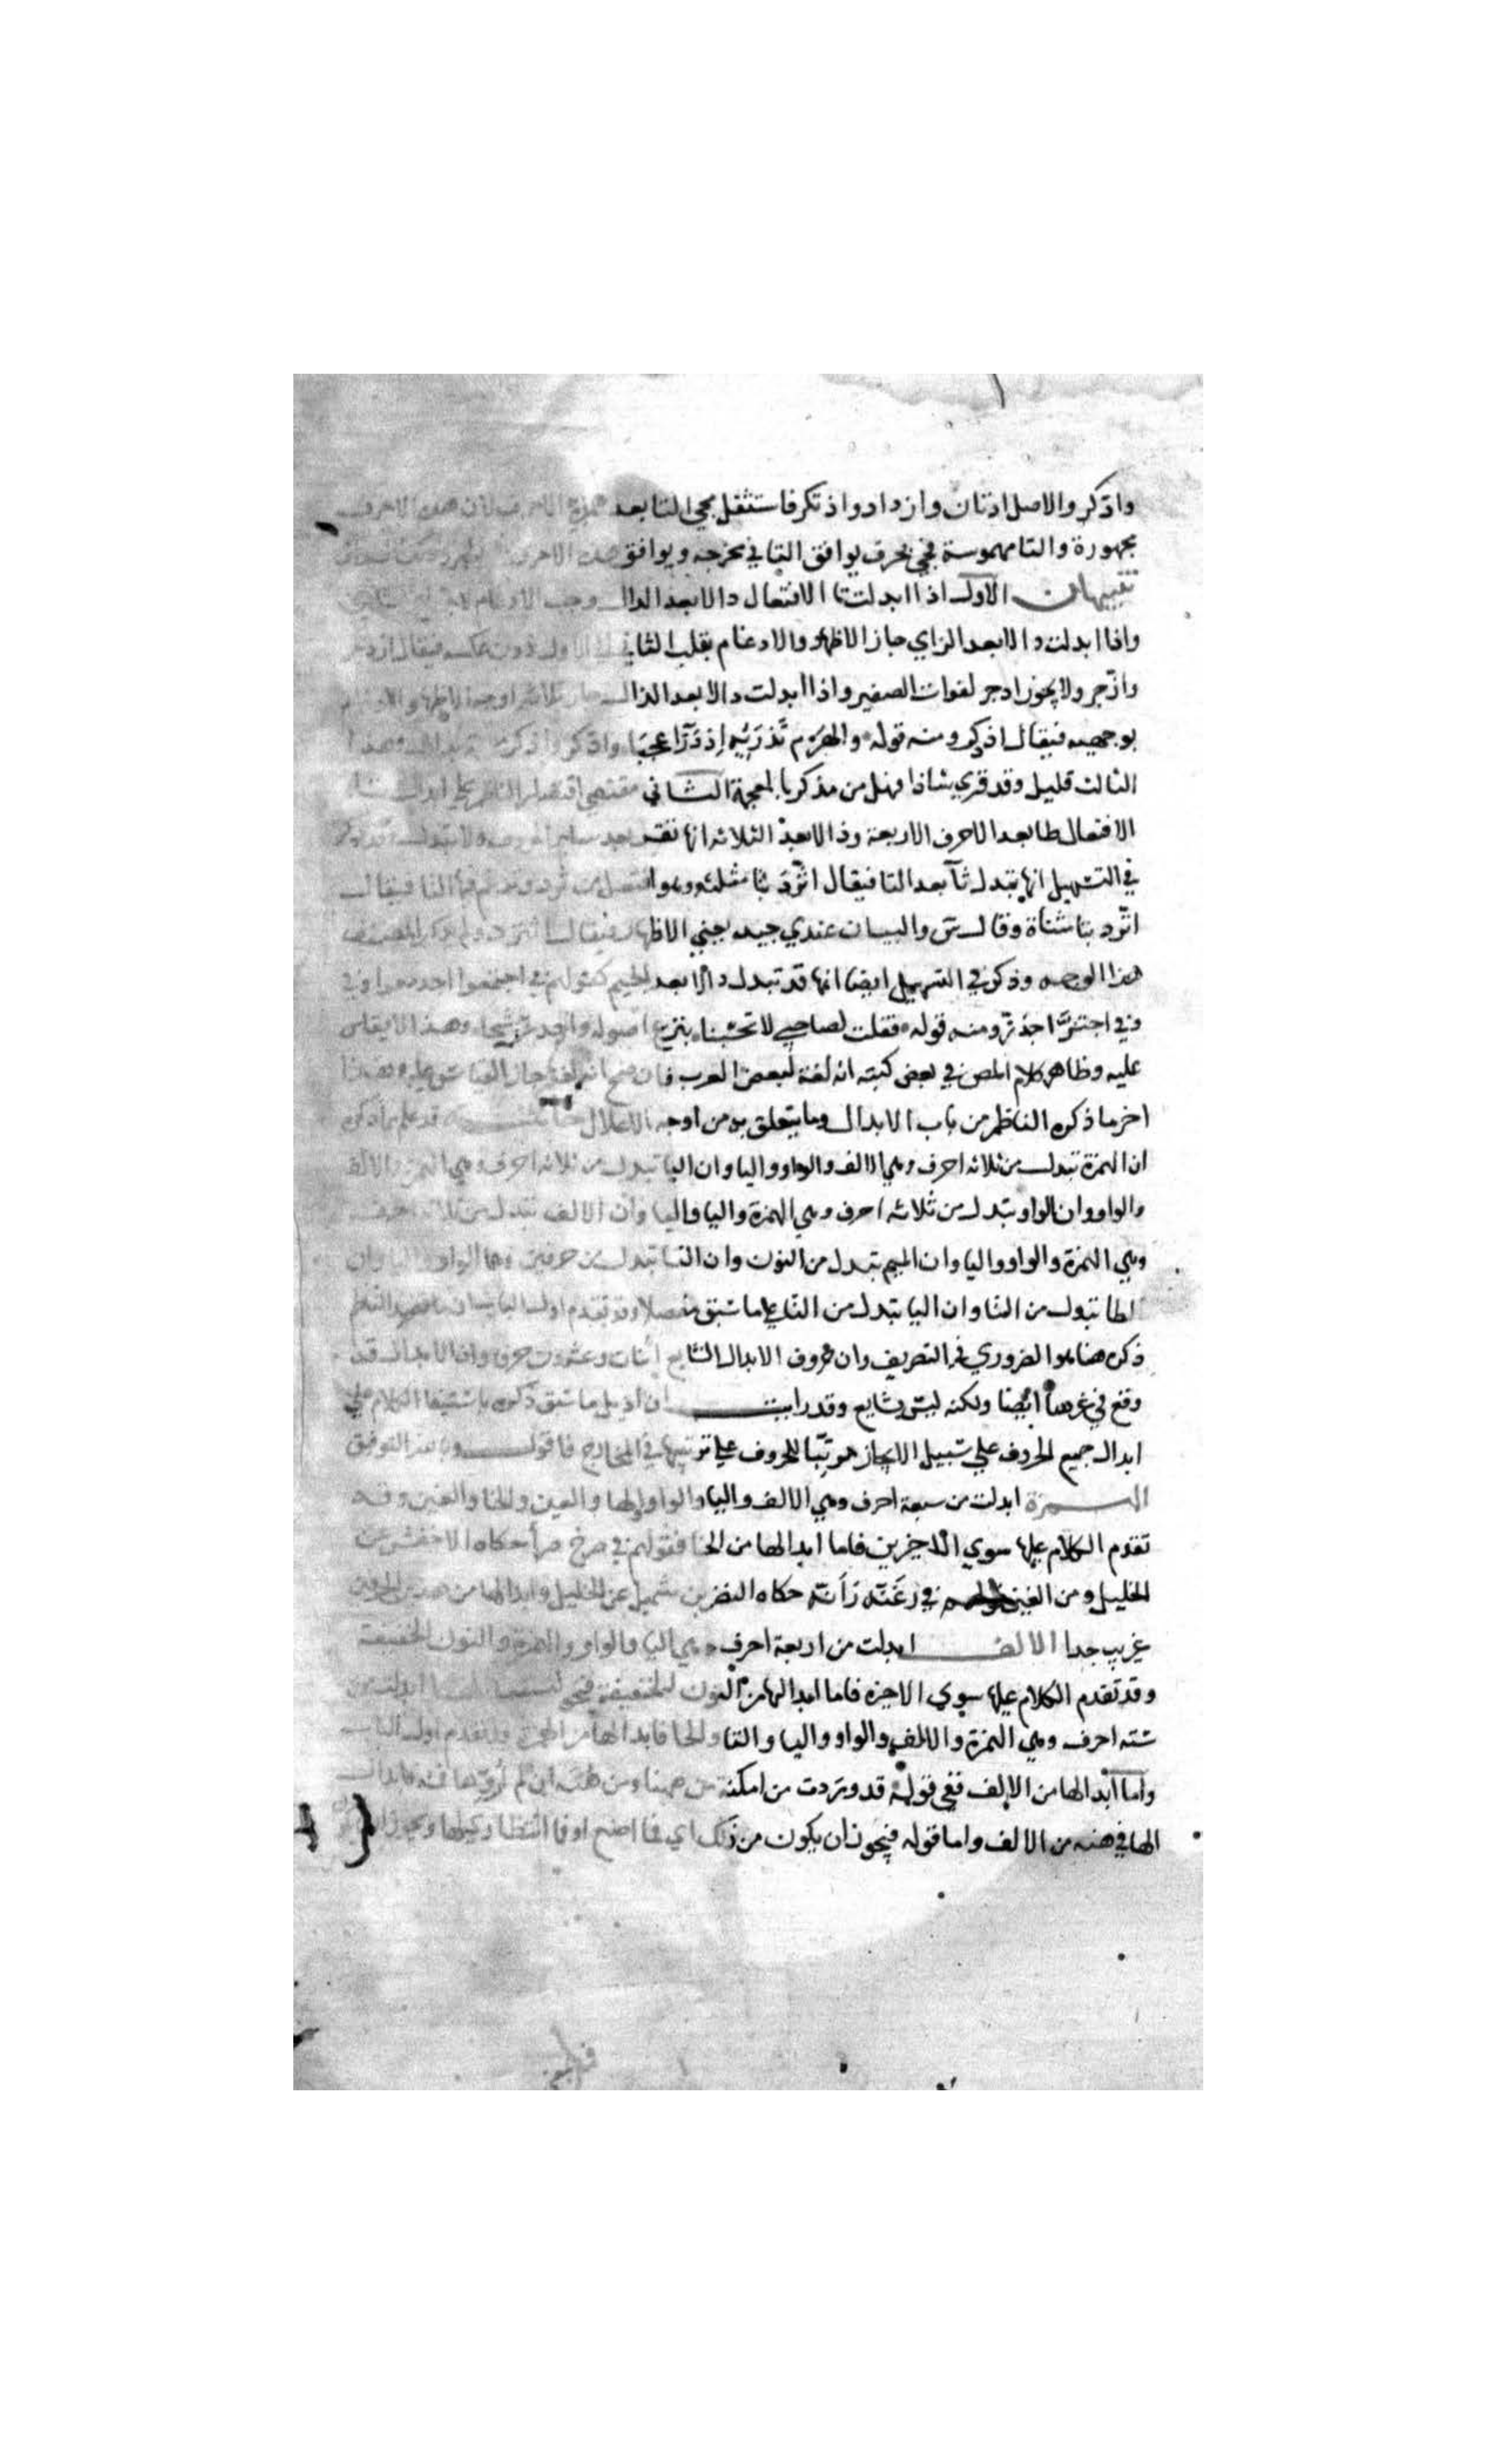 واذكر والاصل ادتان وازداد واذتكر فاستثقل مجي التا بعد هذه الاحرف لان هذه الاحرف
مجهورة والتا مهموسة فجي بحرف يوافق التا في مخرجه ويوافق هذه الاحرف
تنبيهان الاول اذا ابدلت تا الافتعال دالا بعد الدال وجب الادغام
واذا ابدلت دالا بعد الزاي جاز الاظهار والادغام بقلب الثاني الي الاول دون عكسه فيقال ازدجر
وازّجر ولا يجوز ادجر لفوات الصفير واذا ابدلت دالا بعد الذال جاز ثلاثة اوجه الاظهار والادغام
بوجهيه فيقال اذدكر ومنه قوله والهَرْم تذريه اذدراءً عجبا واذكر وادكر وهذا
الثالث قليل وقد قري شاذا فهل من مذكر بالمعجمة الثاني مقتضي اقتصار الناظم علي ابدال تا
الافتعال طا بعد الاحرف الاربعة ودالا بعد الثلاثة انها تقر بعد ساير الحروف ولا تبدل وقد ذكر
في التسهيل انها تبدل ثآ بعد الثا فيقال اثّرد بثا مثلثه وهو افتعل من ثرد وتدغم فيها الثا فيقال
اتّرد بتا مثناة وقال س والبيان عندي جيد يعني الاظهار فيقال اثترد ولم يذكر المصنف
هذا الوجه وذكر في التسهيل ايضا انها قد تبدل دالا بعد الجيم كقولهم في اجتمعوا اجدمعوا وفي
وفي اجتزَّ اجدزّ ومنه قوله فقلت لصاحبي لا تحبسنا بنزع اصوله واجدزّ شيحا وهذا لا يقاس
عليه وظاهر كلام المص في بعض كتبه انه لغة لبعض العرب فان صح انه لغة جاز القياس عليه وهذا
اخر ما ذكره الناظم من باب الابدال وما يتعلق به من اوجه الاعلال خاتمة قد علم بما ذكره
ان الهمزة تبدل من ثلاثه احرف وهي الالف والواو واليا وان اليا تبدل من ثلاثه احرف وهي الهمزة والالف
والواو وان الواو تبدل من ثلاثه احرف وهي الهمزة واليا والالف وان الالف تبدل من ثلاثه احرف
وهي الهمزة والواو واليا وان الميم تبدل من النون وان التا تبدل من حرفين وهما الواو واليا وان
الطا تبدل من التا وان اليا تبدل من التا علي ما سبق مفصلا وقد تقدم اول الباب ان ما قصد الناظم
ذكره هنا هو الضروري في التصريف وان حروف الابدال الشايع اثنان وعشرون حرفا وان الابدال قد
وقع في غيرها ايضا ولكنه ليس بشايع وقد رايت ان اذيل ما سبق ذكره باستيفا الكلام علي
ابدال جميع الحروف علي سبيل الايجاز مرتبا للحروف علي ترتيبها في المخارج فاقول وبالله التوفيق
الهمزة ابدلت من سبعة احرف وهي الالف واليا والواو والها والعين والخا والغين وقد
تقدم الكلام عليها سوي الاخيرين فاما ابدالها من الخا فقولهم في صرخ صرأ حكاه الاخفش عن
الخليل ومن الغين في رغنه رأنه حكاه النضر بن شميل عن الخليل وابدالها من هذين الحرفين
غريب جدا الالف ابدلت من اربعة احرف وهي اليا والواو والهمزة والنون الخفيفة
وقد تقدم الكلام عليها سوي الاخيرة فاما ابدالها من النون الخفيفة فنحو لنسفعا الها ابدلت من
سته احرف وهي الهمزة والالف والواو واليا والتا والحا فابدالها من الهمزة وقد تقدم اول الباب
واما ابدالها من الالف ففي قوله قد وردت من امكنة من ههنا ومن هنه ان لم اروها فمه فابدال
الها في هنه من الالف واما قوله فيجوز ان يكون من ذلك اي فما اصنع او فما انتظاركم لها ويجوز ان